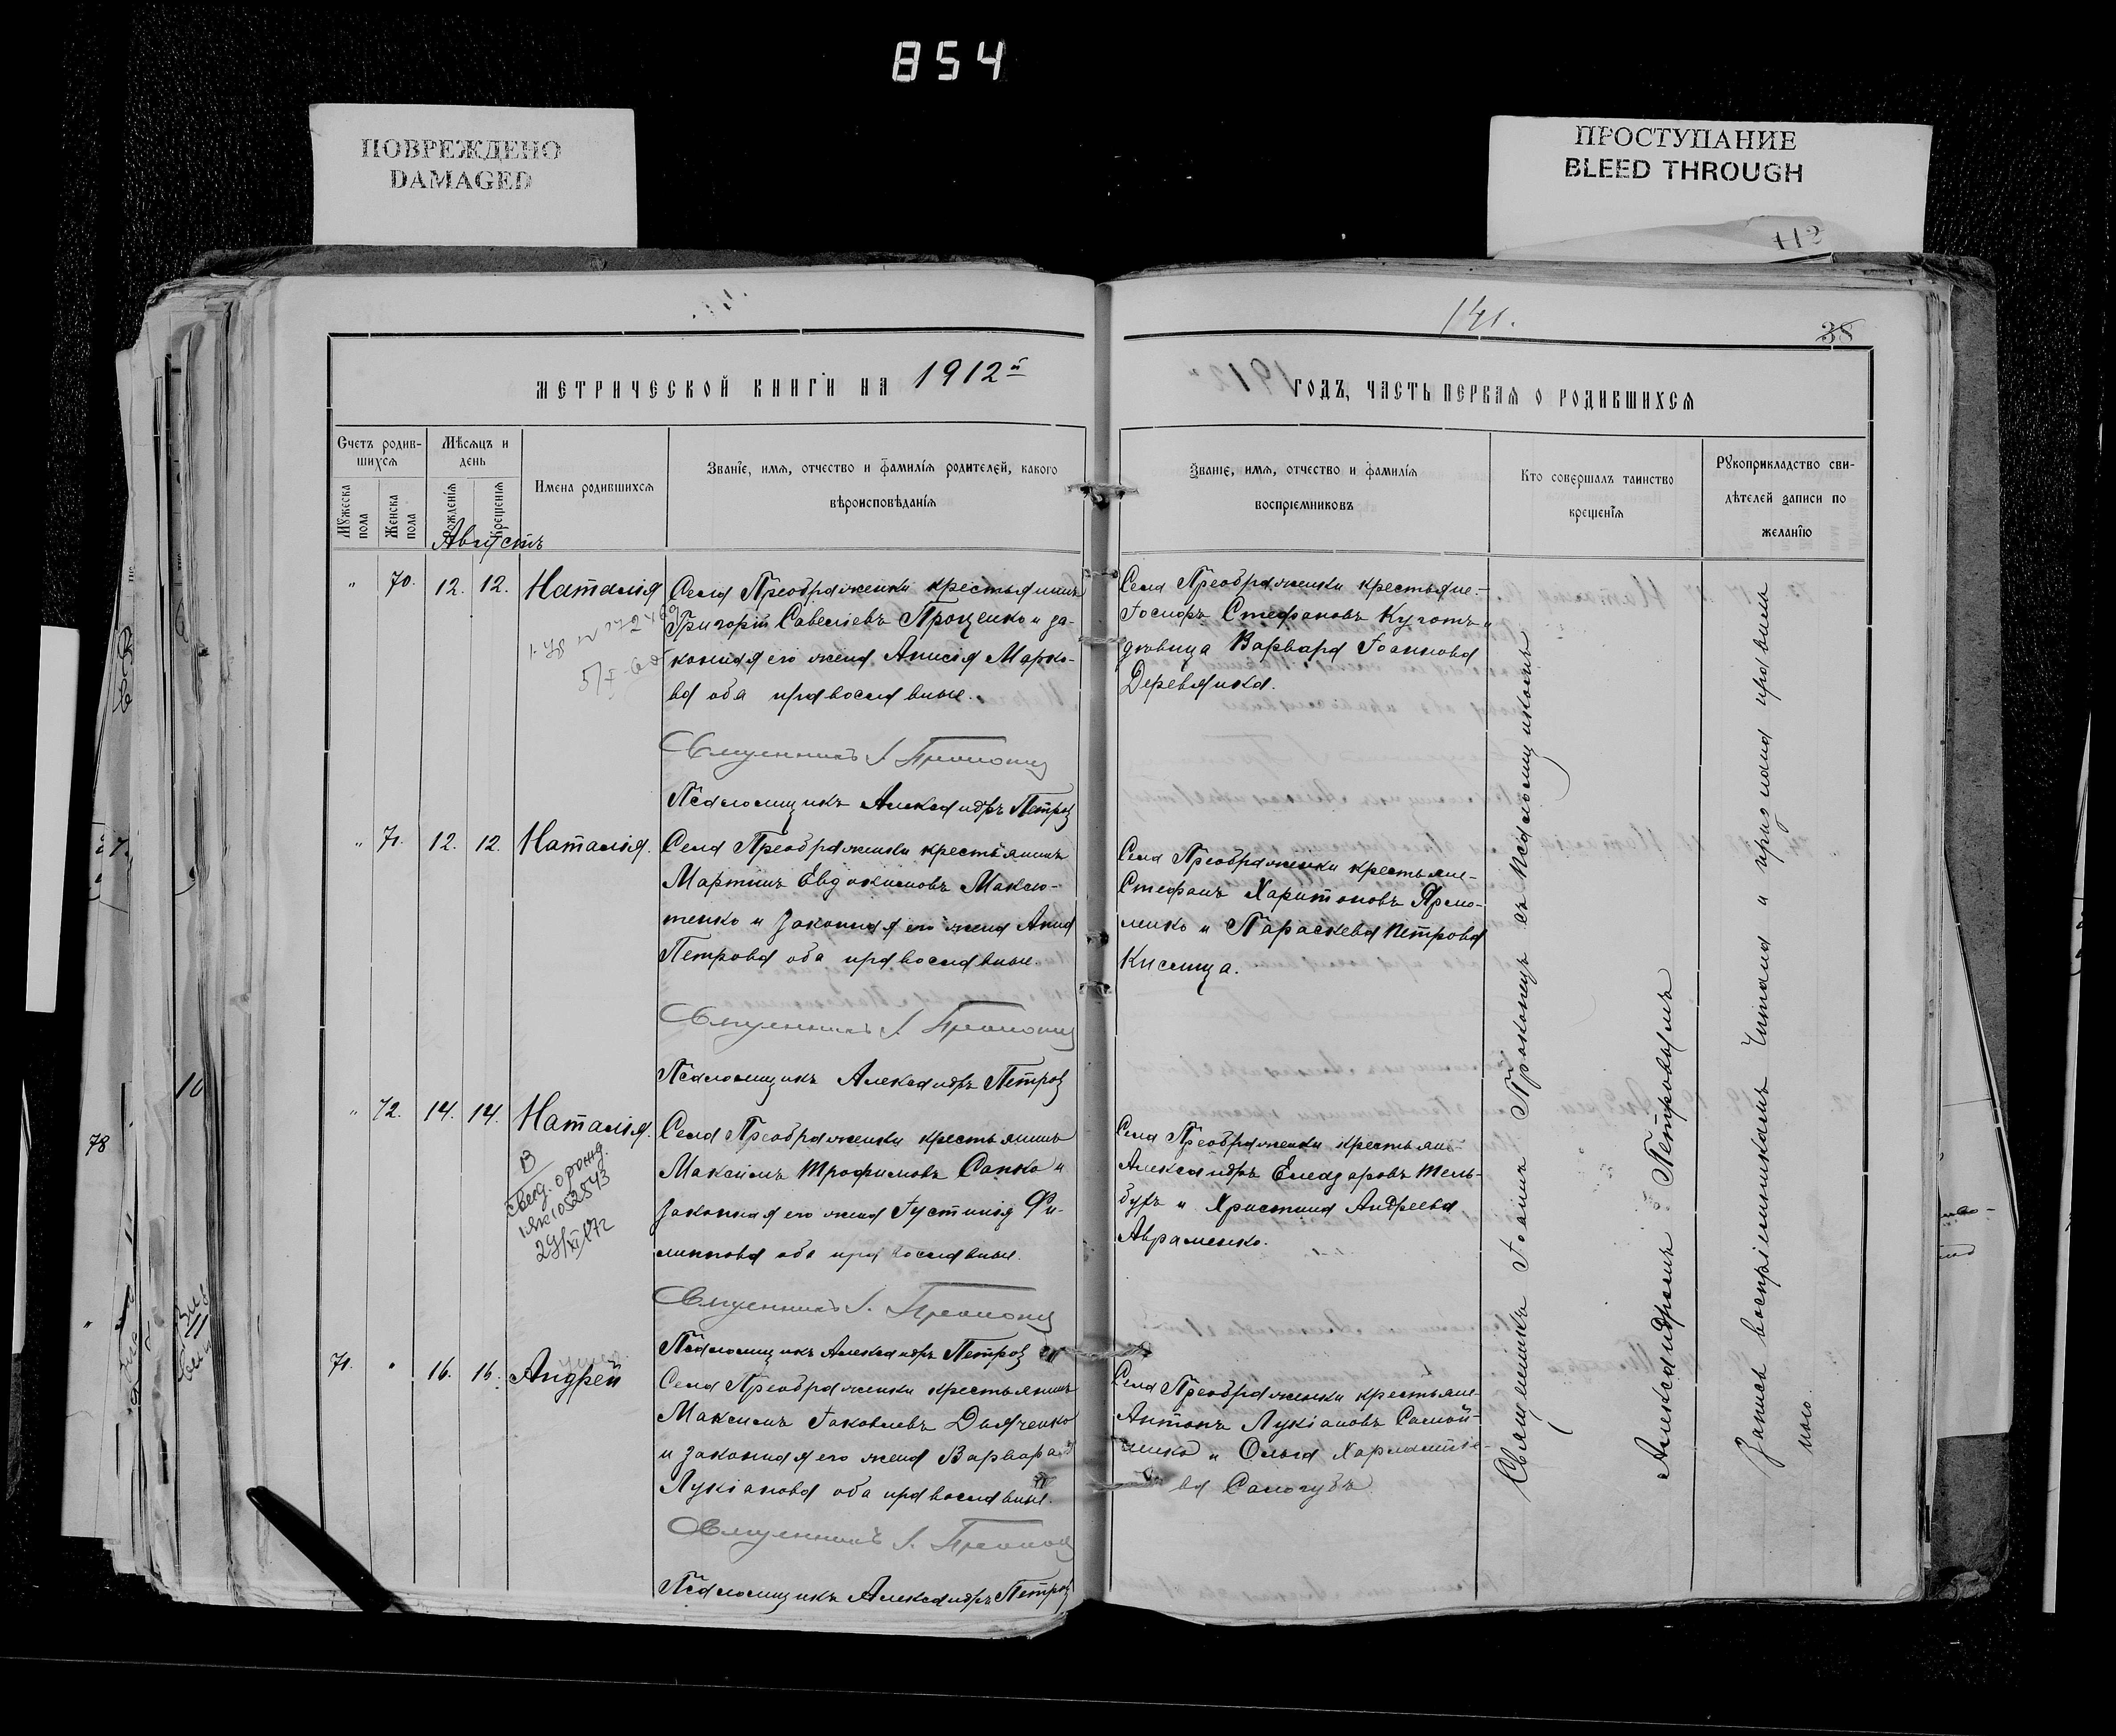 854
ПОВРЕЖДЕНО
DAMAGED
ПРОСТУПАНИЕ
BLEED THROUGH
112
141.
38
МЕТРИЧЕСКОЙ КНИГИ НА 1912й
ГОДЪ, ЧАСТЬ ПЕРВАЯ О РОДИВШИХСЯ
Счетъ родив-
шихся
Мужеска пола
Женска пола
Мѣсяцъ и
день
Рожденія
Крещенія
Имена родившихся
Званіе, имя, отчество и фамилія родителей, какого
вѣроисповѣданія
Званіе, имя, отчество и фамилія
воспріемниковъ
Кто совершалъ таинство
крещенія
Рукоприкладство сви-
дѣтелей записи по
желанію
Августъ
" 70. 12. 12. Наталія
Села Преображенки крестьянинъ
Григорій Савеліевъ Проценко и за-
конная его жена Анисія Марко-
ва оба православные.
Священникъ І. Прокопец
Псаломщикъ Александръ Петров
Села Преображенки крестьяне-
Іосифъ Стефановъ Куготъ и
дѣвица Варвара Іоаннова
Деревянка.
" 71. 12. 12. Наталія.
Села Преображенки крестьянинъ
Мартинъ Евдокимовъ Максю-
тенко и законная его жена Анна
Петрова оба православные.
Священникъ І. Прокопец
Псаломщикъ Александръ Петров
Села Преображенки крестьяне-
Стефанъ Харитоновъ Ярмо-
ленко и Параскева Петрова
Кислица.
" 72. 14. 14. Наталія.
В
свид. о рожд.
1ЯК 1052543
29/XI 1972
Села Преображенки крестьянинъ
Максимъ Трофимовъ Сапко и
законная его жена Іустинія Фи-
липпова оба православные.
Священникъ І. Прокопец
Псаломщикъ Александръ Петров
Села Преображенки крестьяне-
Александръ Елеазаровъ Тель-
буръ и Христина Андреева
Авраменко.
71. " 16. 16. Андрей
Села Преображенки крестьянинъ
Максимъ Іаковлевъ Дьяченко
и законная его жена Варвара
Лукіанова оба православные.
Священникъ І. Прокопец
Псаломщикъ Александръ Петров
Села Преображенки крестьяне
Антонъ Лукіановъ Самой-
ленко и Ольга Харлампіе-
ва Сологубъ
Священникъ Іоаннъ Прокопецъ съ псаломщикомъ
Александромъ Петровымъ
Запись воспріемникамъ читана и признана правиль
ною.
78
10